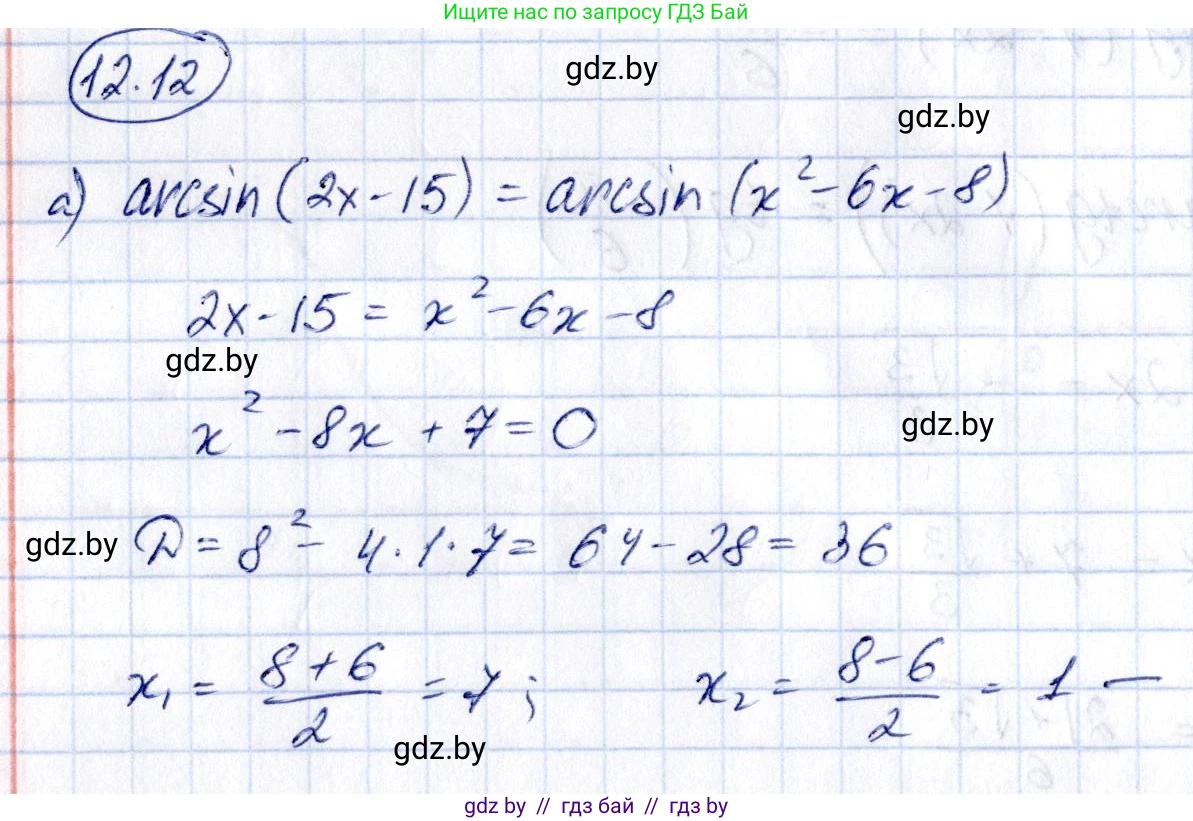 Ищите нас по запросу ГДЗ Бай
12.12
gdz.by
gdz.by
а) arcsin (2x - 15) = arcsin (x² - 6x - 8)
2x - 15 = x² - 6x - 8
gdz.by
x² - 8x + 7 = 0
gdz.by
gdz.by
D = 8² - 4 · 1 · 7 = 64 - 28 = 36
x₁ = (8 + 6)/2 = 7 ; x₂ = (8 - 6)/2 = 1 —
gdz.by
gdz.by // гдз бай // гдз by